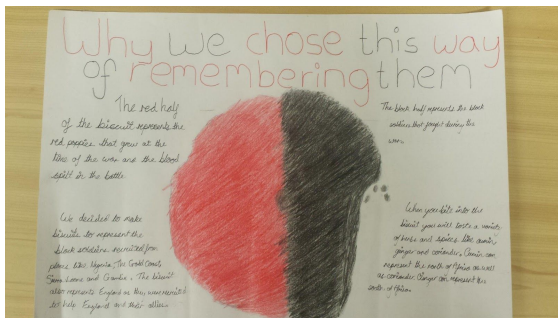 Why we chose this way
of remembering them
The red half
of the biscuit represents the
red poppies that grew at the
time of the war and the blood
spilt in the battle.
We decided to make
biscuits to represent the
black soldiers recruited from
places like Nigeria, The Gold Coast,
Sierra Leone and Gambia. The biscuit
also represents England as they were recruited
to help England and their allies.
The black half represents the black
soldiers that fought during the
war.
When you bite into the
biscuit you will taste a variety
of herbs and spices like cumin,
ginger and coriander. Cumin can
represent the north of Africa as well
as coriander. Ginger can represent the
south of Africa.